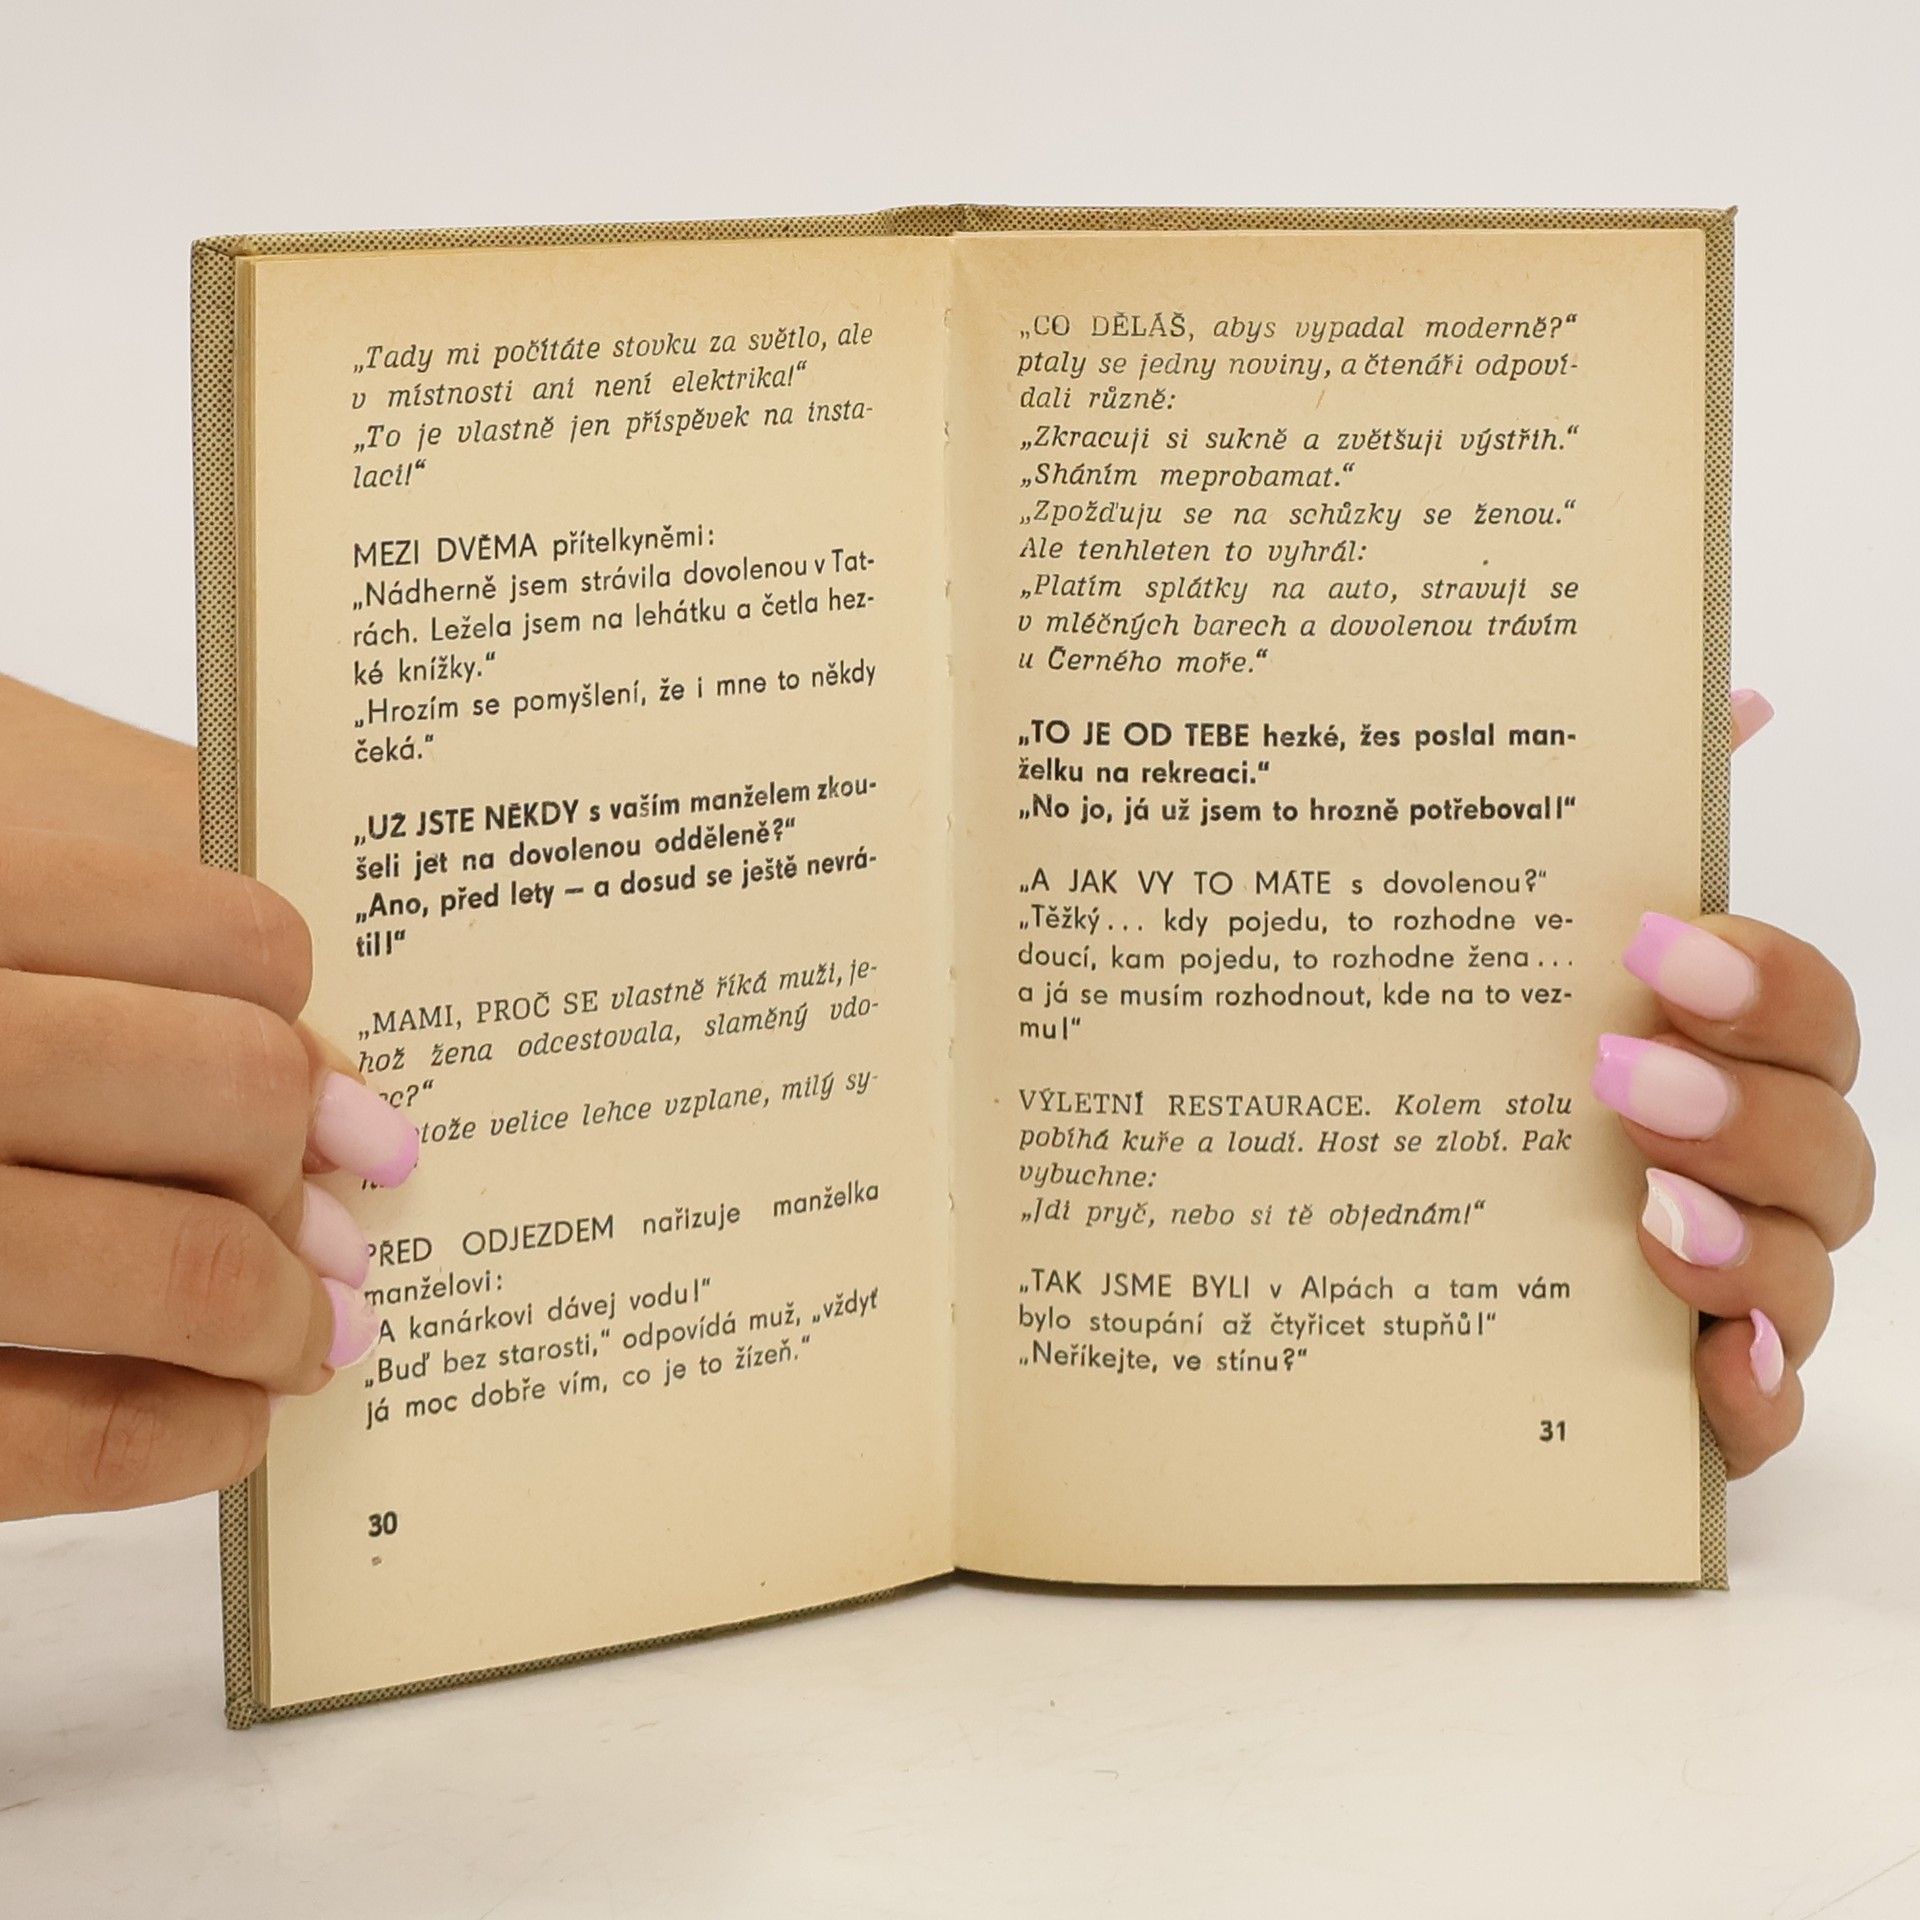 „Tady mi počítáte stovku za světlo, ale
v místnosti ani není elektrika!“
„To je vlastně jen příspěvek na insta-
laci!“
MEZI DVĚMA přítelkyněmi:
„Nádherně jsem strávila dovolenou v Tat-
rách. Ležela jsem na lehátku a četla hez-
ké knížky.“
„Hrozím se pomyšlení, že i mne to někdy
čeká.“
„UŽ JSTE NĚKDY s vaším manželem zkou-
šeli jet na dovolenou odděleně?“
„Ano, před lety — a dosud se ještě nevrá-
til!“
„MAMI, PROČ SE vlastně říká muži, je-
hož žena odcestovala, slaměný vdo-
ec?“
tože velice lehce vzplane, milý sy-
PŘED ODJEZDEM nařizuje manželka
manželovi:
A kanárkovi dávej vodu!“
„Buď bez starosti,“ odpovídá muž, „vždyť
já moc dobře vím, co je to žízeň.“
30
„CO DĚLÁŠ, abys vypadal moderně?“
ptaly se jedny noviny, a čtenáři odpoví-
dali různě:
„Zkracuji si sukně a zvětšuji výstřih.“
„Sháním meprobamat.“
„Zpožďuju se na schůzky se ženou.“
Ale tenhleten to vyhrál:
„Platím splátky na auto, stravuji se
v mléčných barech a dovolenou trávím
u Černého moře.“
„TO JE OD TEBE hezké, žes poslal man-
želku na rekreaci.“
„No jo, já už jsem to hrozně potřeboval!“
„A JAK VY TO MÁTE s dovolenou?“
„Těžký... kdy pojedu, to rozhodne ve-
doucí, kam pojedu, to rozhodne žena...
a já se musím rozhodnout, kde na to vez-
mu!“
VÝLETNÍ RESTAURACE. Kolem stolu
pobíhá kuře a loudí. Host se zlobí. Pak
vybuchne:
„Jdi pryč, nebo si tě objednám!“
„TAK JSME BYLI v Alpách a tam vám
bylo stoupání až čtyřicet stupňů!“
„Neříkejte, ve stínu?“
31